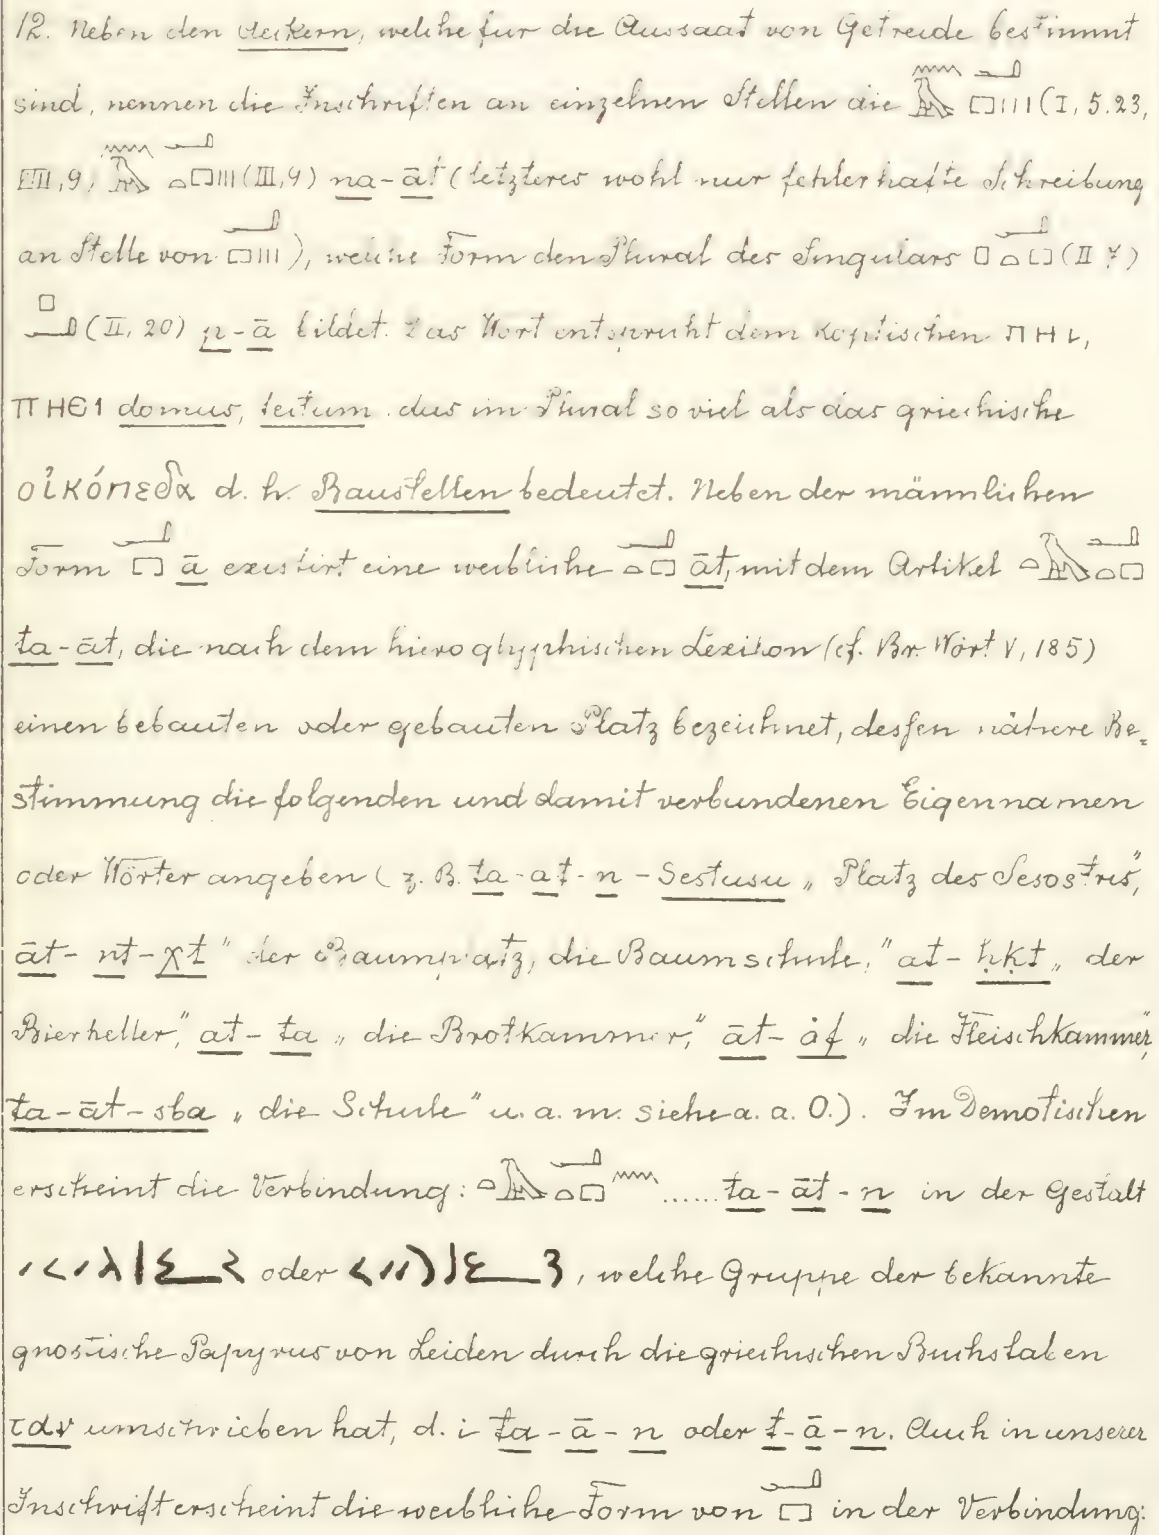 12. Neben den Aeckern, welche für die Aussaat von Getreide bestimmt
sind, nennen die Inschriften an einzelnen Stellen die (I, 5. 23,
III, 9) (III, 9) na-āt (letzteres wohl nur fehlerhafte Schreibung
an Stelle von ), welche Form den Plural des Singulars (II )
(II, 20) p-ā bildet. Das Wort entspricht dem koptischen ⲡⲏⲓ,
ⲡⲏⲉⲓ domus, tectum das im Plural so viel als das griechische
οἰκόπεδα d. h. Baustellen bedeutet. Neben der männlichen
Form ā existirt eine weibliche āt, mit dem Artikel
ta-āt, die nach dem hieroglyphischen Lexikon (cf. Br. Wört V, 185)
einen bebauten oder gebauten Platz bezeichnet, dessen nähere Be-
stimmung die folgenden und damit verbundenen Eigennamen
oder Wörter angeben (z. B. ta-at-n-Sestusu „Platz des Sesostris",
āt-nt-χt" der Baumplatz, die Baumschule," at-ḥḳt „der
Bierkeller," at-ta „die Brotkammer," āt-ȧf „die Fleischkammer,"
ta-āt-sba „die Schule" u. a. m. siehe a. a. O.). Im Demotischen
erscheint die Verbindung: ...... ta-āt-n in der Gestalt
oder , welche Gruppe der bekannte
gnostische Papyrus von Leiden durch die griechischen Buchstaben
ταν umschrieben hat, d. i ta-ā-n oder t-ā-n. Auch in unserer
Inschrift erscheint die weibliche Form von in der Verbindung: